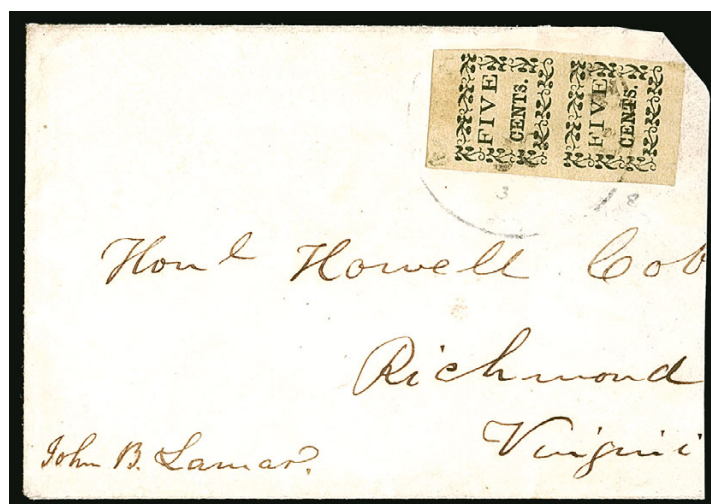 FIVE CENTS.
FIVE CENTS.
3 8
Honl Howell Cob
Richmond
Virgini
John B. Lamar.